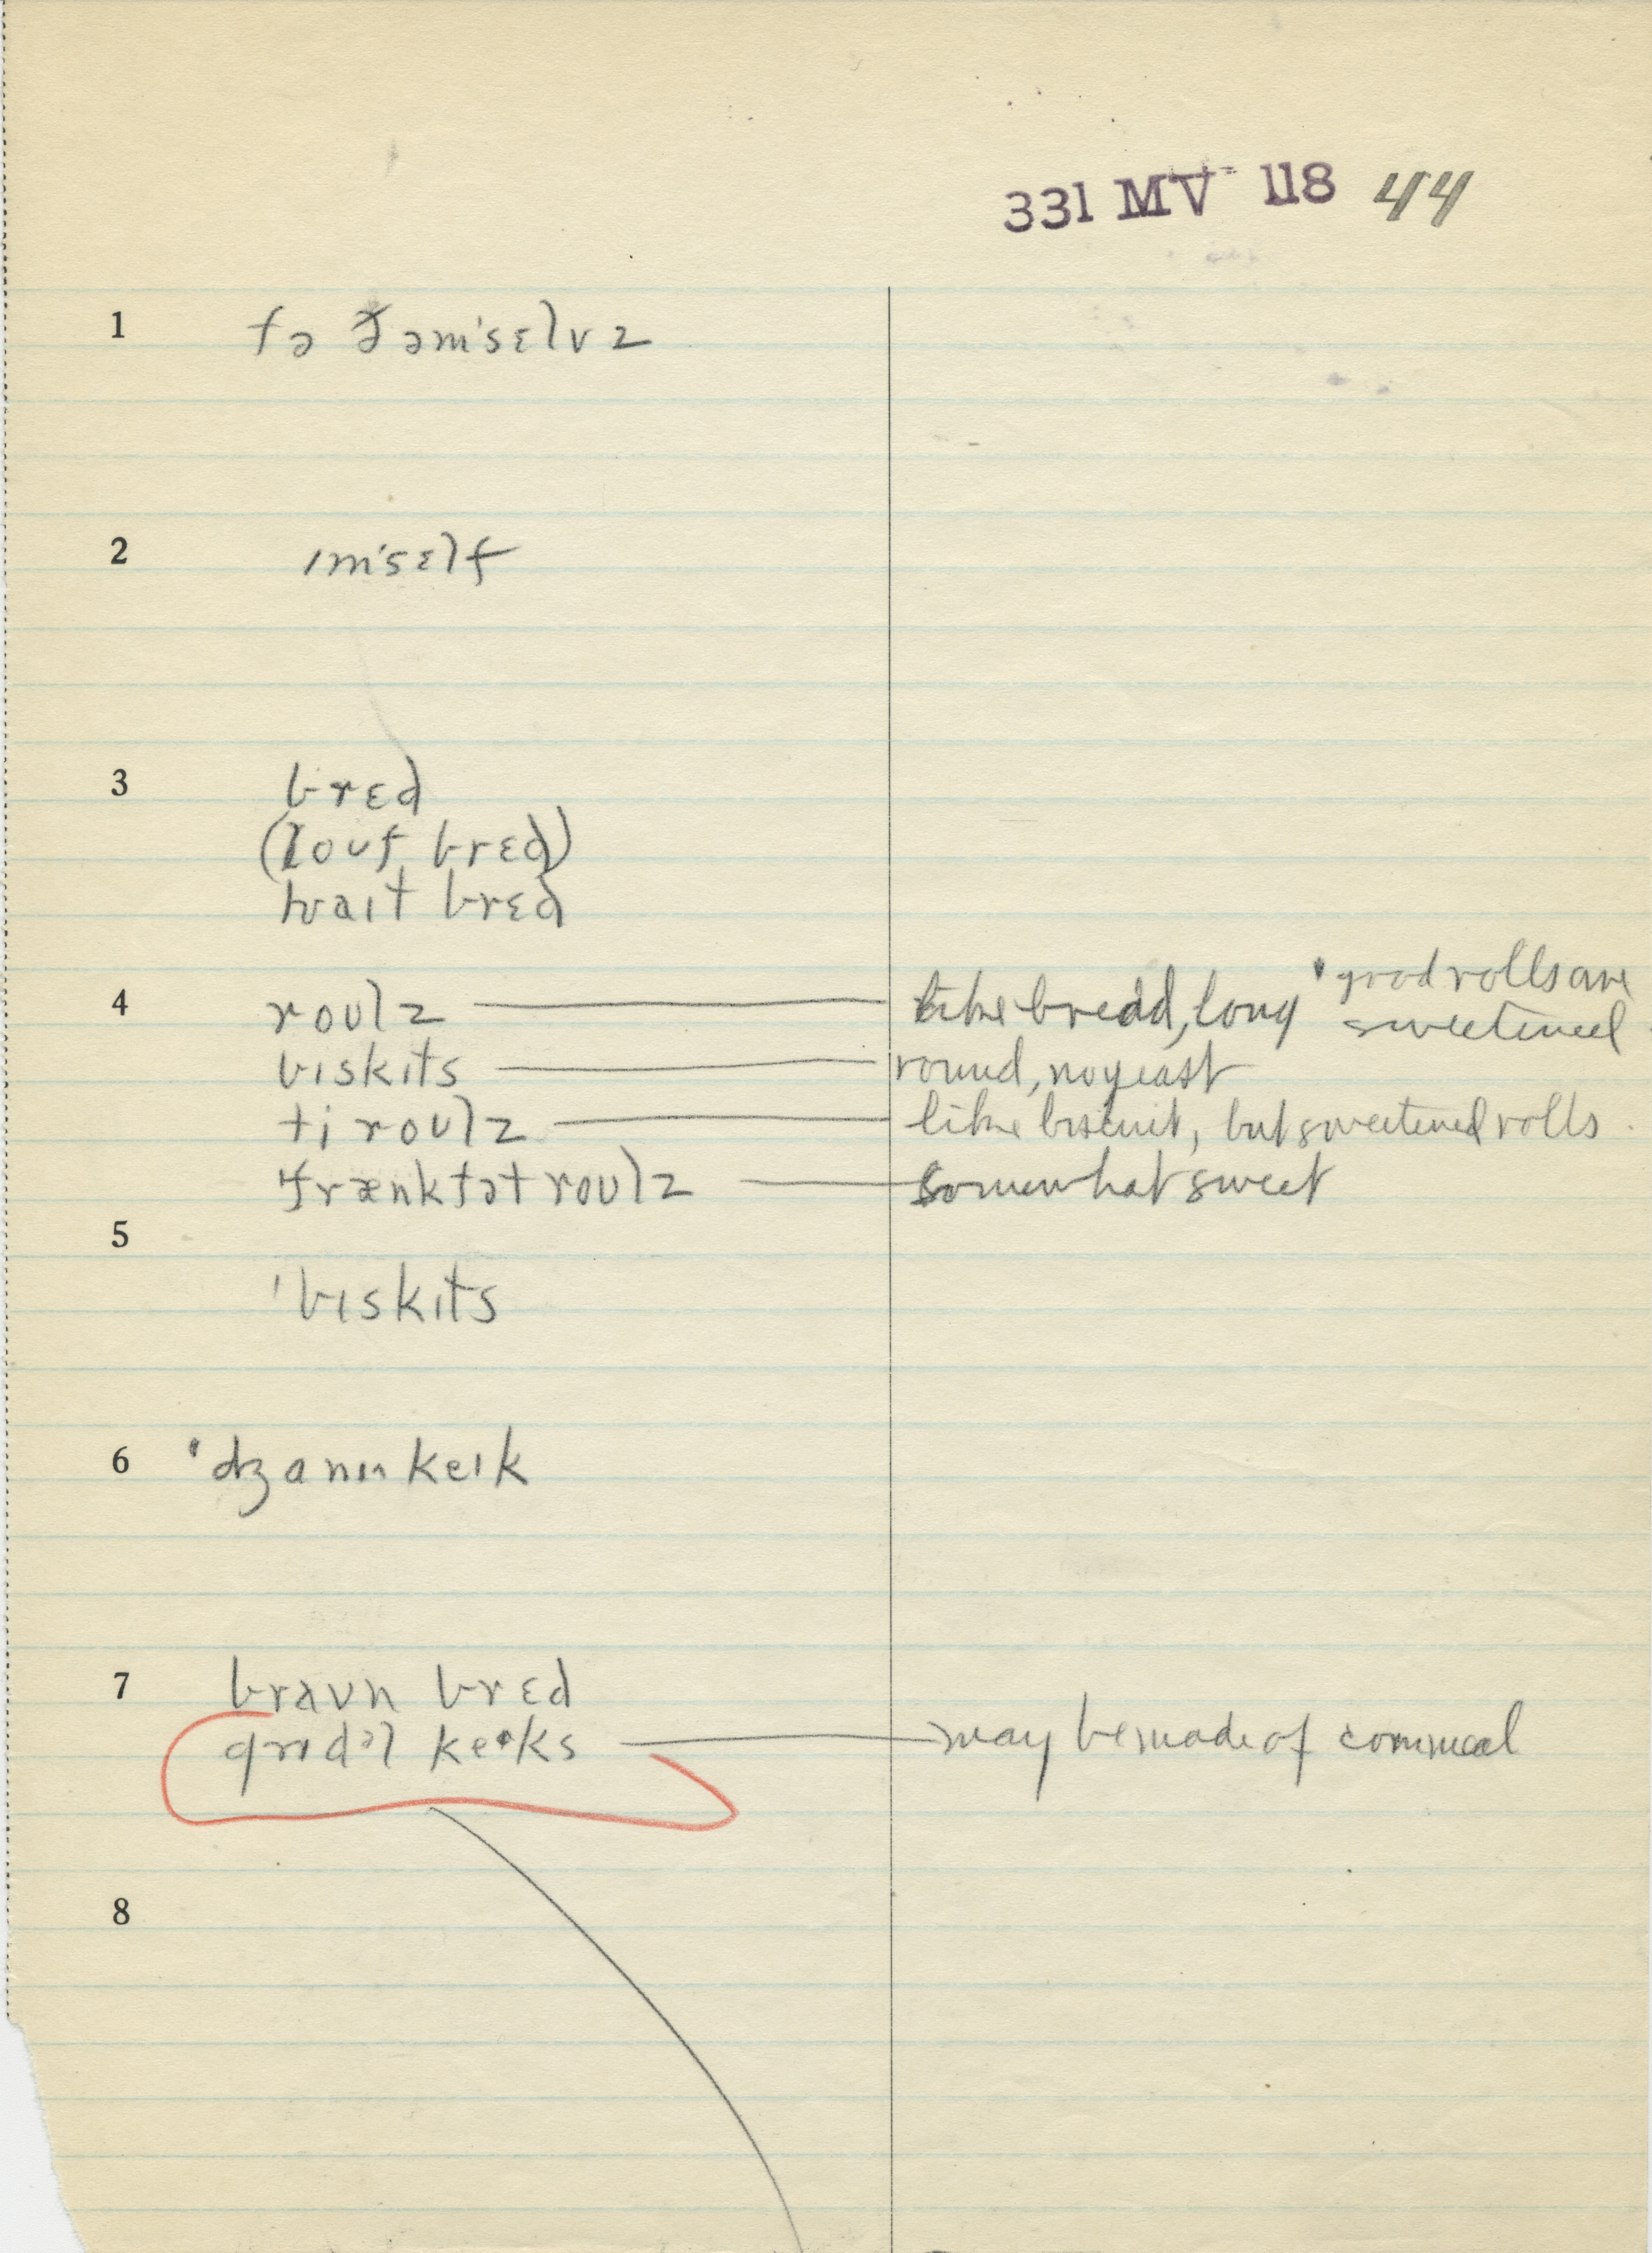 331 MV 118 44
1 fə ðəm'sɛlvz
2 ɪm'sɛlf
3 brɛd
(louf brɛd)
hwaɪt brɛd
4 roʊlz — like bread, long ' good rolls are sweetened
bɪskɪts — round, no yeast
ti roʊlz — like biscuit, but sweetened rolls.
fræŋkfət roʊlz — somewhat sweet
5
'bɪskɪts
6 'dʒanɪn keɪk
7 braʊn brɛd
grɪdəl keɪks — may be made of cornmeal
8